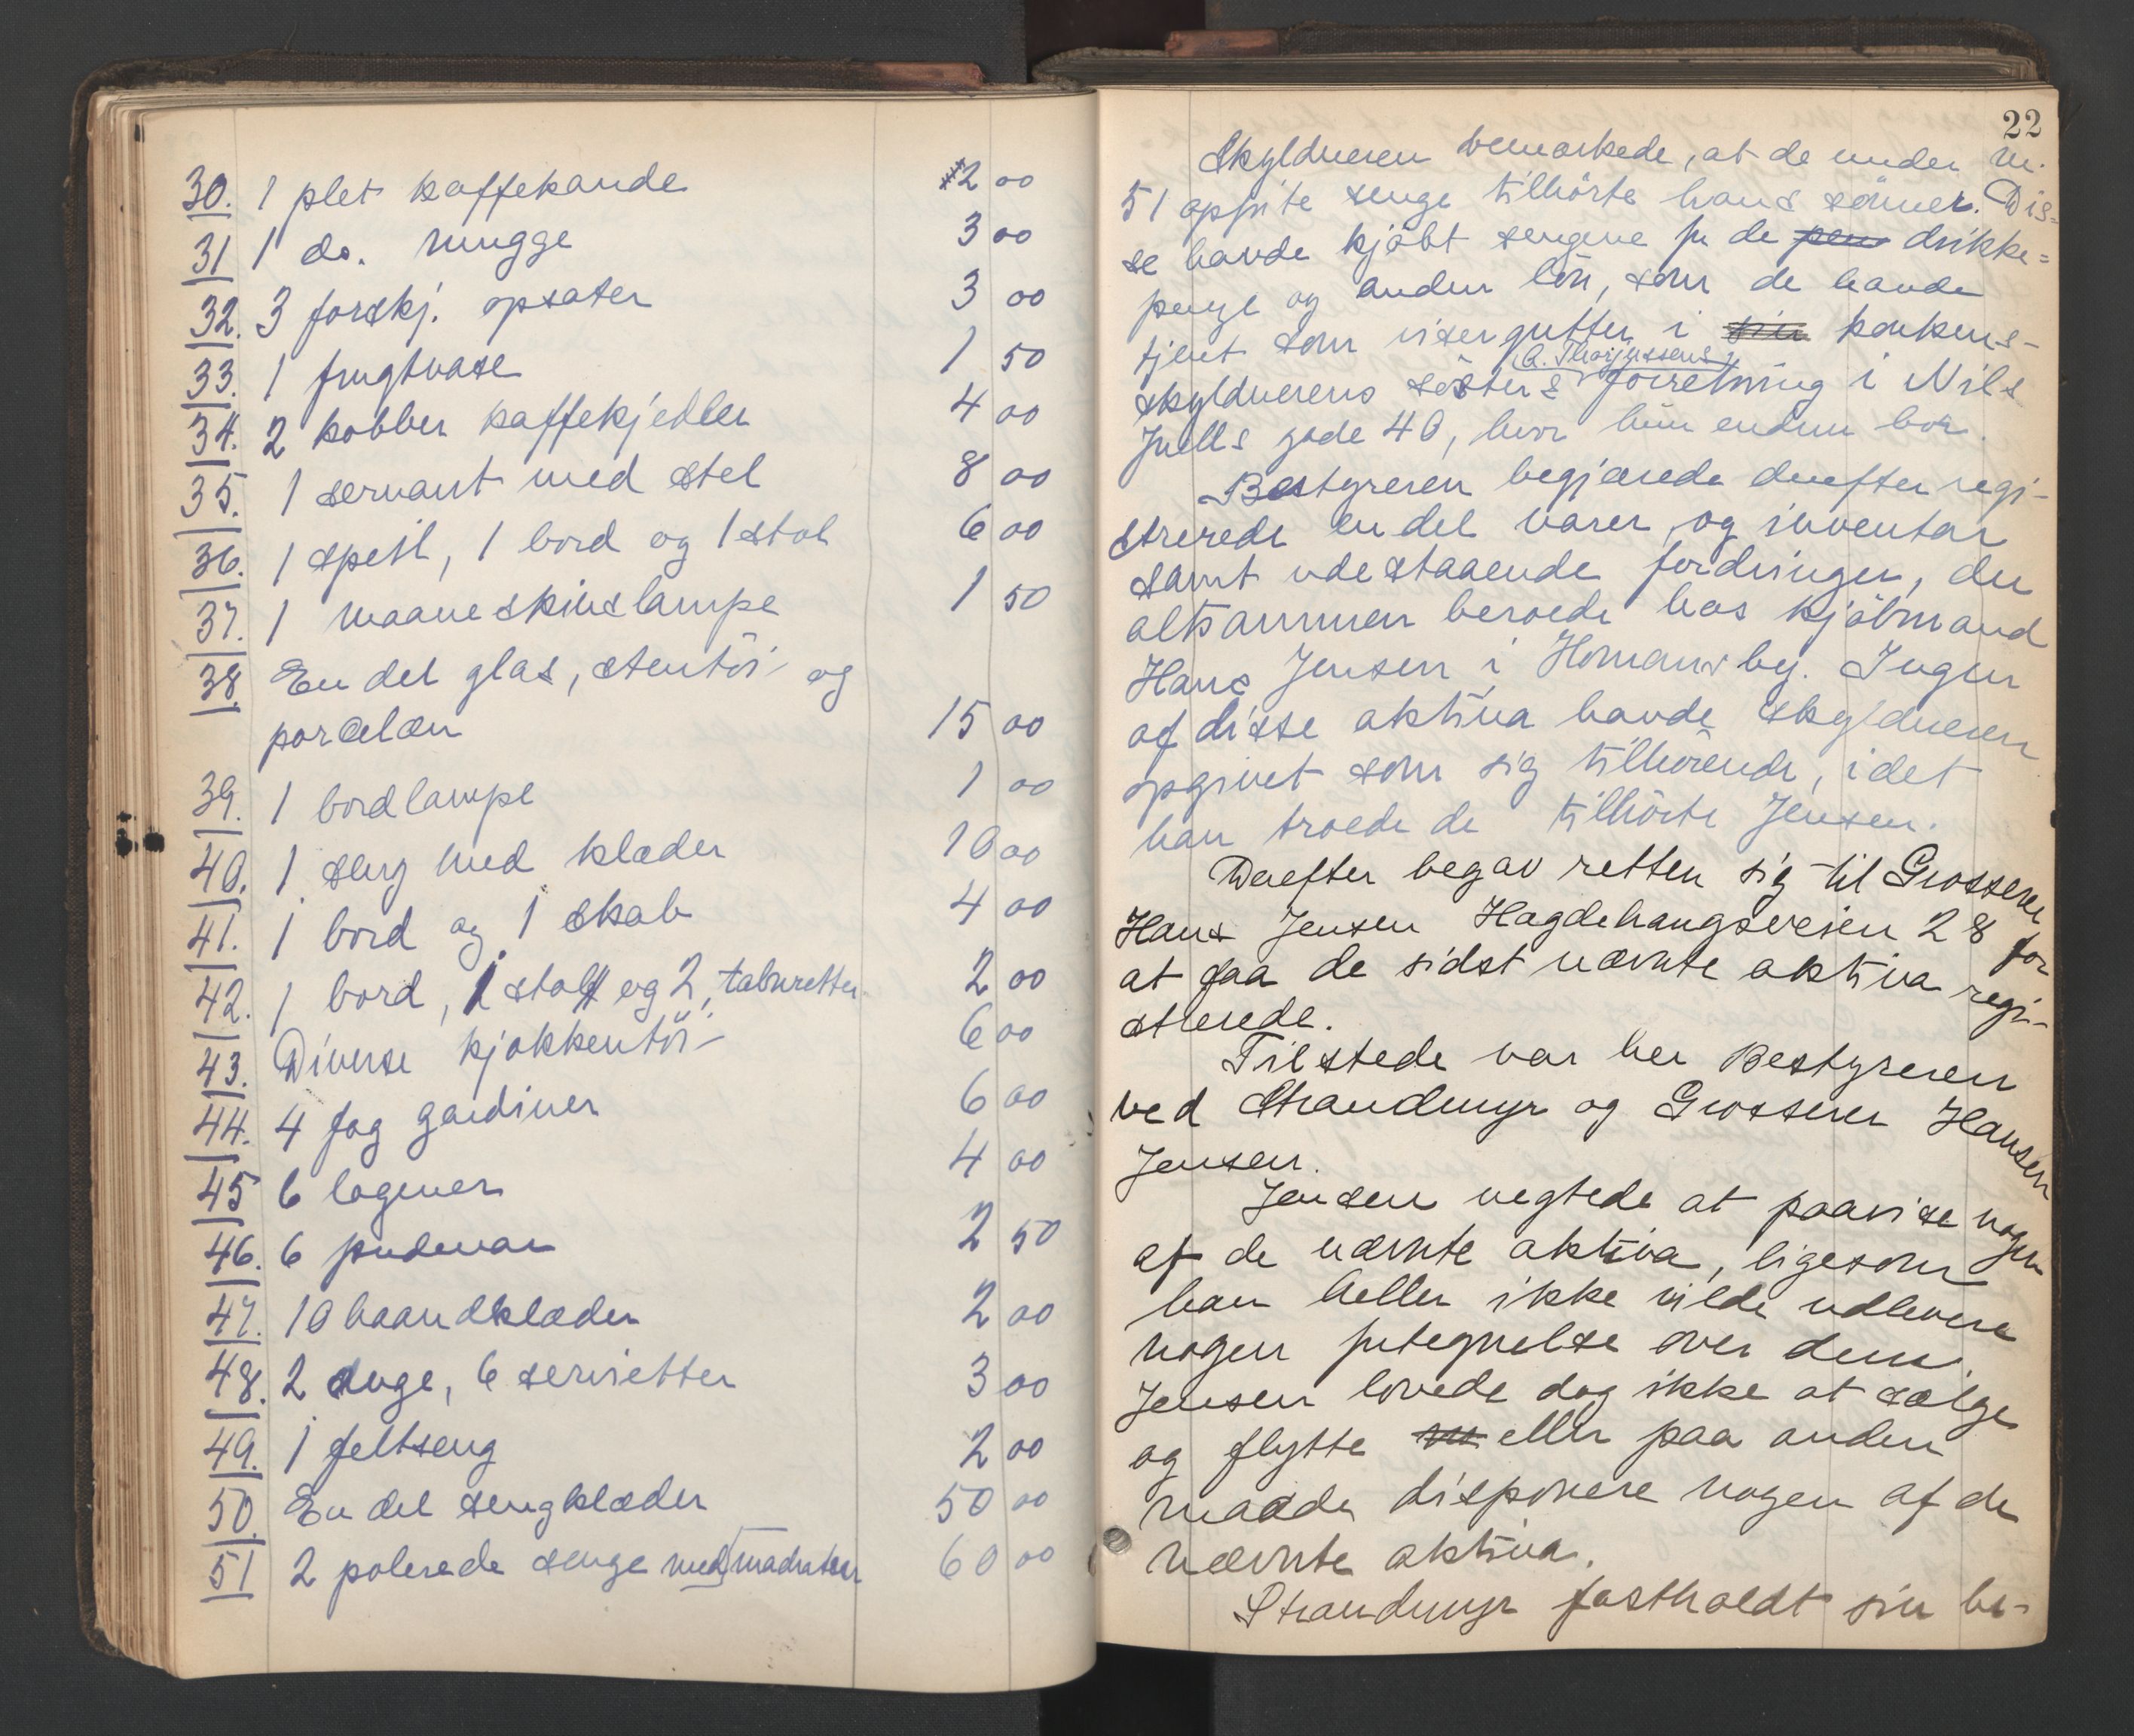 30. 1 plet kaffekande 2 00
31 1 do. mugge 3 00
32. 3 forskj. opsater 3 00
33. 1 frugtvase 1 50
34. 2 kobber kaffekjedler 4 00
35. 1 servant med stel 8 00
36. 1 speil, 1 bord og 1 stol 6 00
37. 1 maaneskinslampe 1 50
38. En del glas, stentöi og
porcelæn 15 00
39. 1 bordlampe 1 00
40. 1 seng med klæder 10 00
41. 1 bord og 1 skab 4 00
42. 1 bord, 1 stol og 2 taburetter 2 00
43. Diverse kjøkkentöi 6 00
44. 4 fag gardiner 6 00
45 6 lagener 4 00
46. 6 pudevar 2 50
47. 10 haandklæder 2 00
48. 2 duge, 6 servietter 3 00
49. 1 feltseng 2 00
50. En del sengklæder 50 00
51 2 polerede senge med madratser 60 00
22
Skyldneren bemærkede, at de under nr.
51 opførte senge tilhörte hans sönner. Dis=
se havde kjöbt sengene for de drikke=
penge og anden lön, som de havde
tjent som visergutter i konkurs-
A. Thorjussens
skyldnerens søsters forretning i Nils
Juells gade 40, hvor hun endnu bor.
Bestyreren begjærede derefter regi-
strerede en del varer og inventar
samt udestaaende fordringer, der
altsammen beroede hos kjöbmand
Hans Jensen i Homansby. Ingen
af disse aktiva havde skyldneren
opgivet som sig tilhörende, idet
han troede de tilhörte Jensen.
Derefter begav retten sig til Grosserer
Hans Jensen Hagdehaugsveien 28 for
at faa de sidst nævnte aktiva regi-
strerede.
Tilstede var her Bestyreren
ved Strandmyr og Grosserer Hansen
Jensen.
Jensen negtede at paavise nogen
af de nævnte aktiva, ligesom
han heller ikke vilde udlevere
nogen fortegnelse over dem.
Jensen lovede dog ikke at sælge
og flytte eller paa anden
maade disponere nogen af de
nævnte aktiva.
Strandmyr fastholdt sin be-